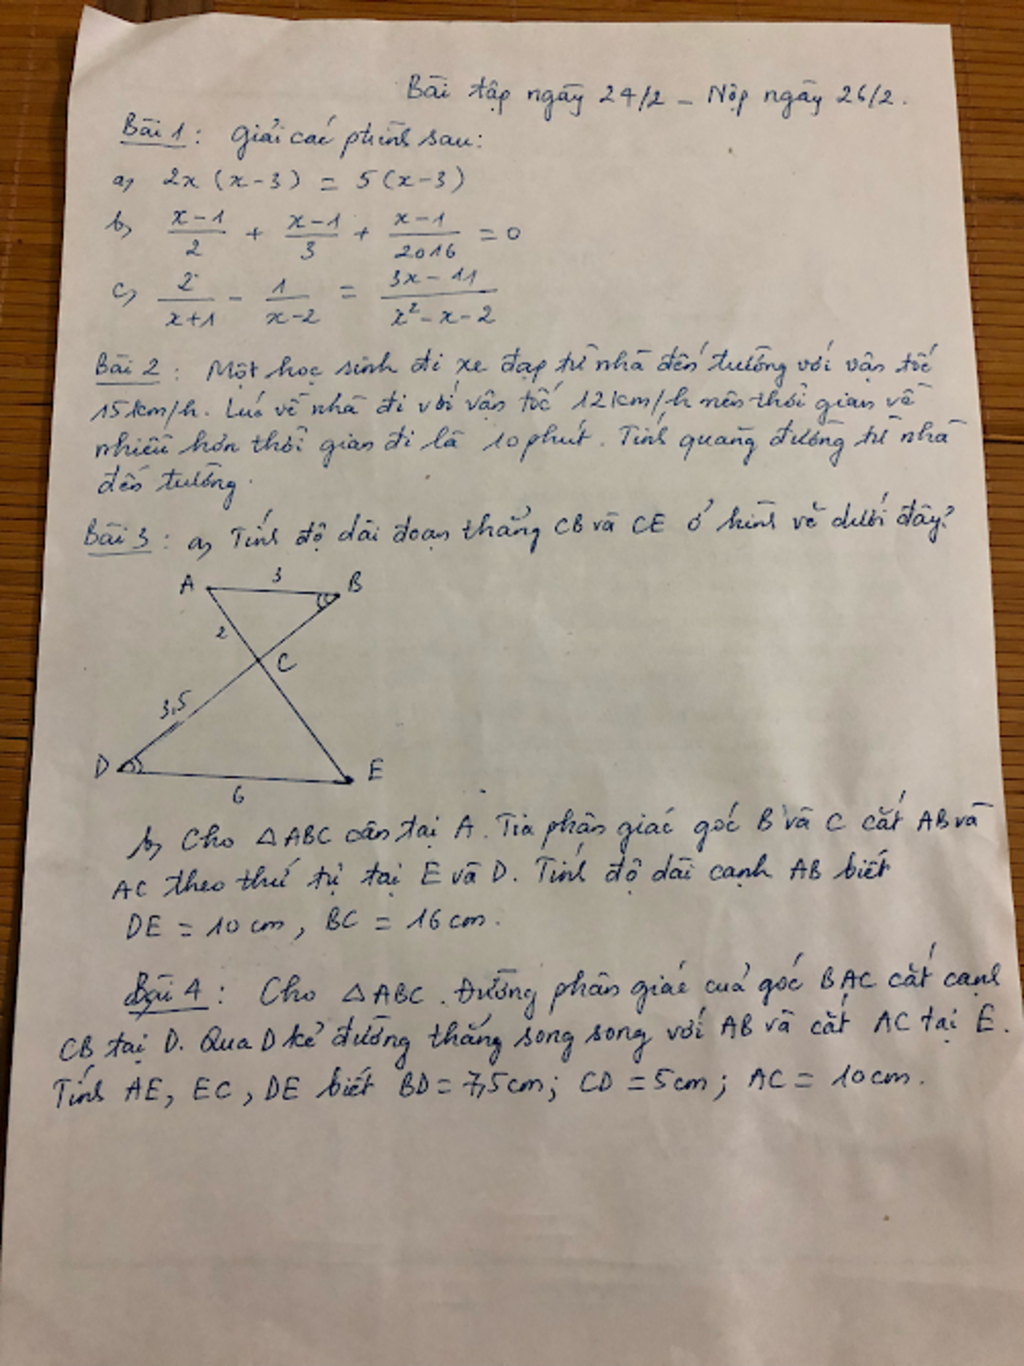 Bài tập ngày 24/2 - Nộp ngày 26/2.
Bài 1: Giải các phtrình sau:
a, 2x (x-3) = 5 (x-3)
b, (x-1)/2 + (x-1)/3 + (x-1)/2016 = 0
c, 2/(x+1) - 1/(x-2) = (3x-11)/(x²-x-2)
Bài 2: Một học sinh đi xe đạp từ nhà đến trường với vận tốc
15km/h. Lúc về nhà đi với vận tốc 12km/h nên thời gian về
nhiều hơn thời gian đi là 10 phút. Tính quãng đường từ nhà
đến trường.
Bài 3: a, Tính độ dài đoạn thẳng CB và CE ở hình vẽ dưới đây?
A 3 B
2
C
3,5
D E
6
b, Cho △ABC cân tại A. Tia phân giác góc B và C cắt AB và
AC theo thứ tự tại E và D. Tính độ dài cạnh AB biết
DE = 10cm, BC = 16cm.
Bài 4: Cho △ABC. Đường phân giác của góc BAC cắt cạnh
CB tại D. Qua D kẻ đường thẳng song song với AB và cắt AC tại E.
Tính AE, EC, DE biết BD = 7,5cm; CD = 5cm; AC = 10cm.